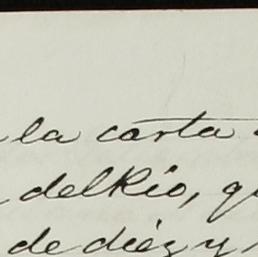 la carta
del Rio, q
de diez y